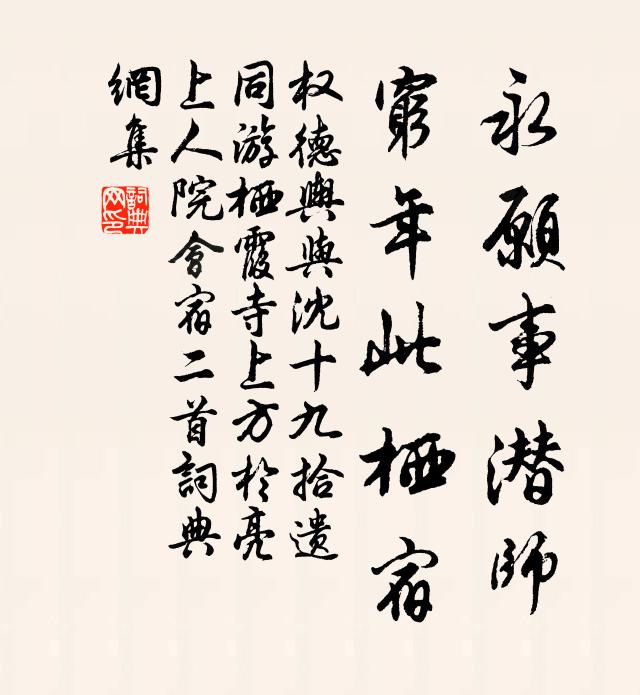 永愿事潜師
窮年此栖宿
权德輿與沈十九拾遺
同游栖霞寺上方於亮
上人院會宿二首詞典
網集
詞典
网印